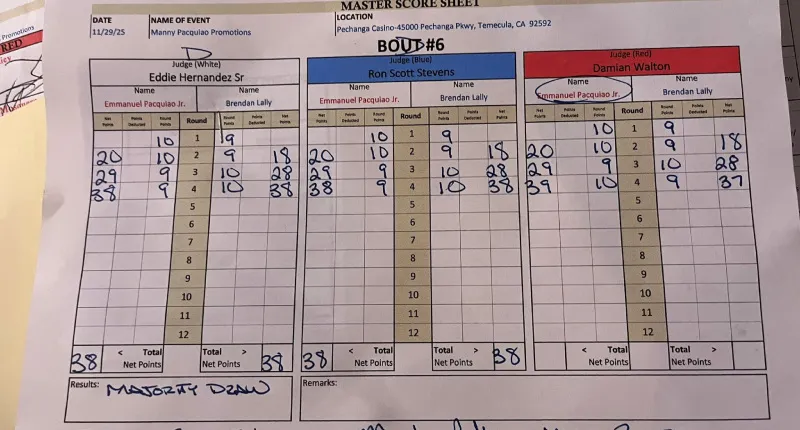 MASTER SCORE SHEET
DATE NAME OF EVENT LOCATION
11/29/25 Manny Pacquiao Promotions Pechanga Casino-45000 Pechanga Pkwy, Temecula, CA 92592
Promotions
RED
BOUT #6
D
Judge (White) Judge (Blue) Judge (Red)
Eddie Hernandez Sr Ron Scott Stevens Damian Walton
Name Name Name Name Name Name
Emmanuel Pacquiao Jr. Brendan Lally Emmanuel Pacquiao Jr. Brendan Lally Emmanuel Pacquiao Jr. Brendan Lally
Net Points Points Deducted Round Points Round Round Points Points Deducted Net Points Net Points Points Deducted Round Points Round Round Points Points Deducted Net Points Net Points Points Deducted Round Points Round Round Points Points Deducted Net Points
10 1 9 10 1 9 10 1 9
20 10 2 9 18 20 10 2 9 18 20 10 2 9 18
29 9 3 10 28 29 9 3 10 28 29 9 3 10 28
38 9 4 10 38 38 9 4 10 38 39 10 4 9 37
5 5 5
6 6 6
7 7 7
8 8 8
9 9 9
10 10 10
11 11 11
12 12 12
38 < Total Net Points Total > Net Points 38 38 < Total Net Points Total > Net Points 38 < Total Net Points Total > Net Points
Results: MAJORITY DRAW Remarks: